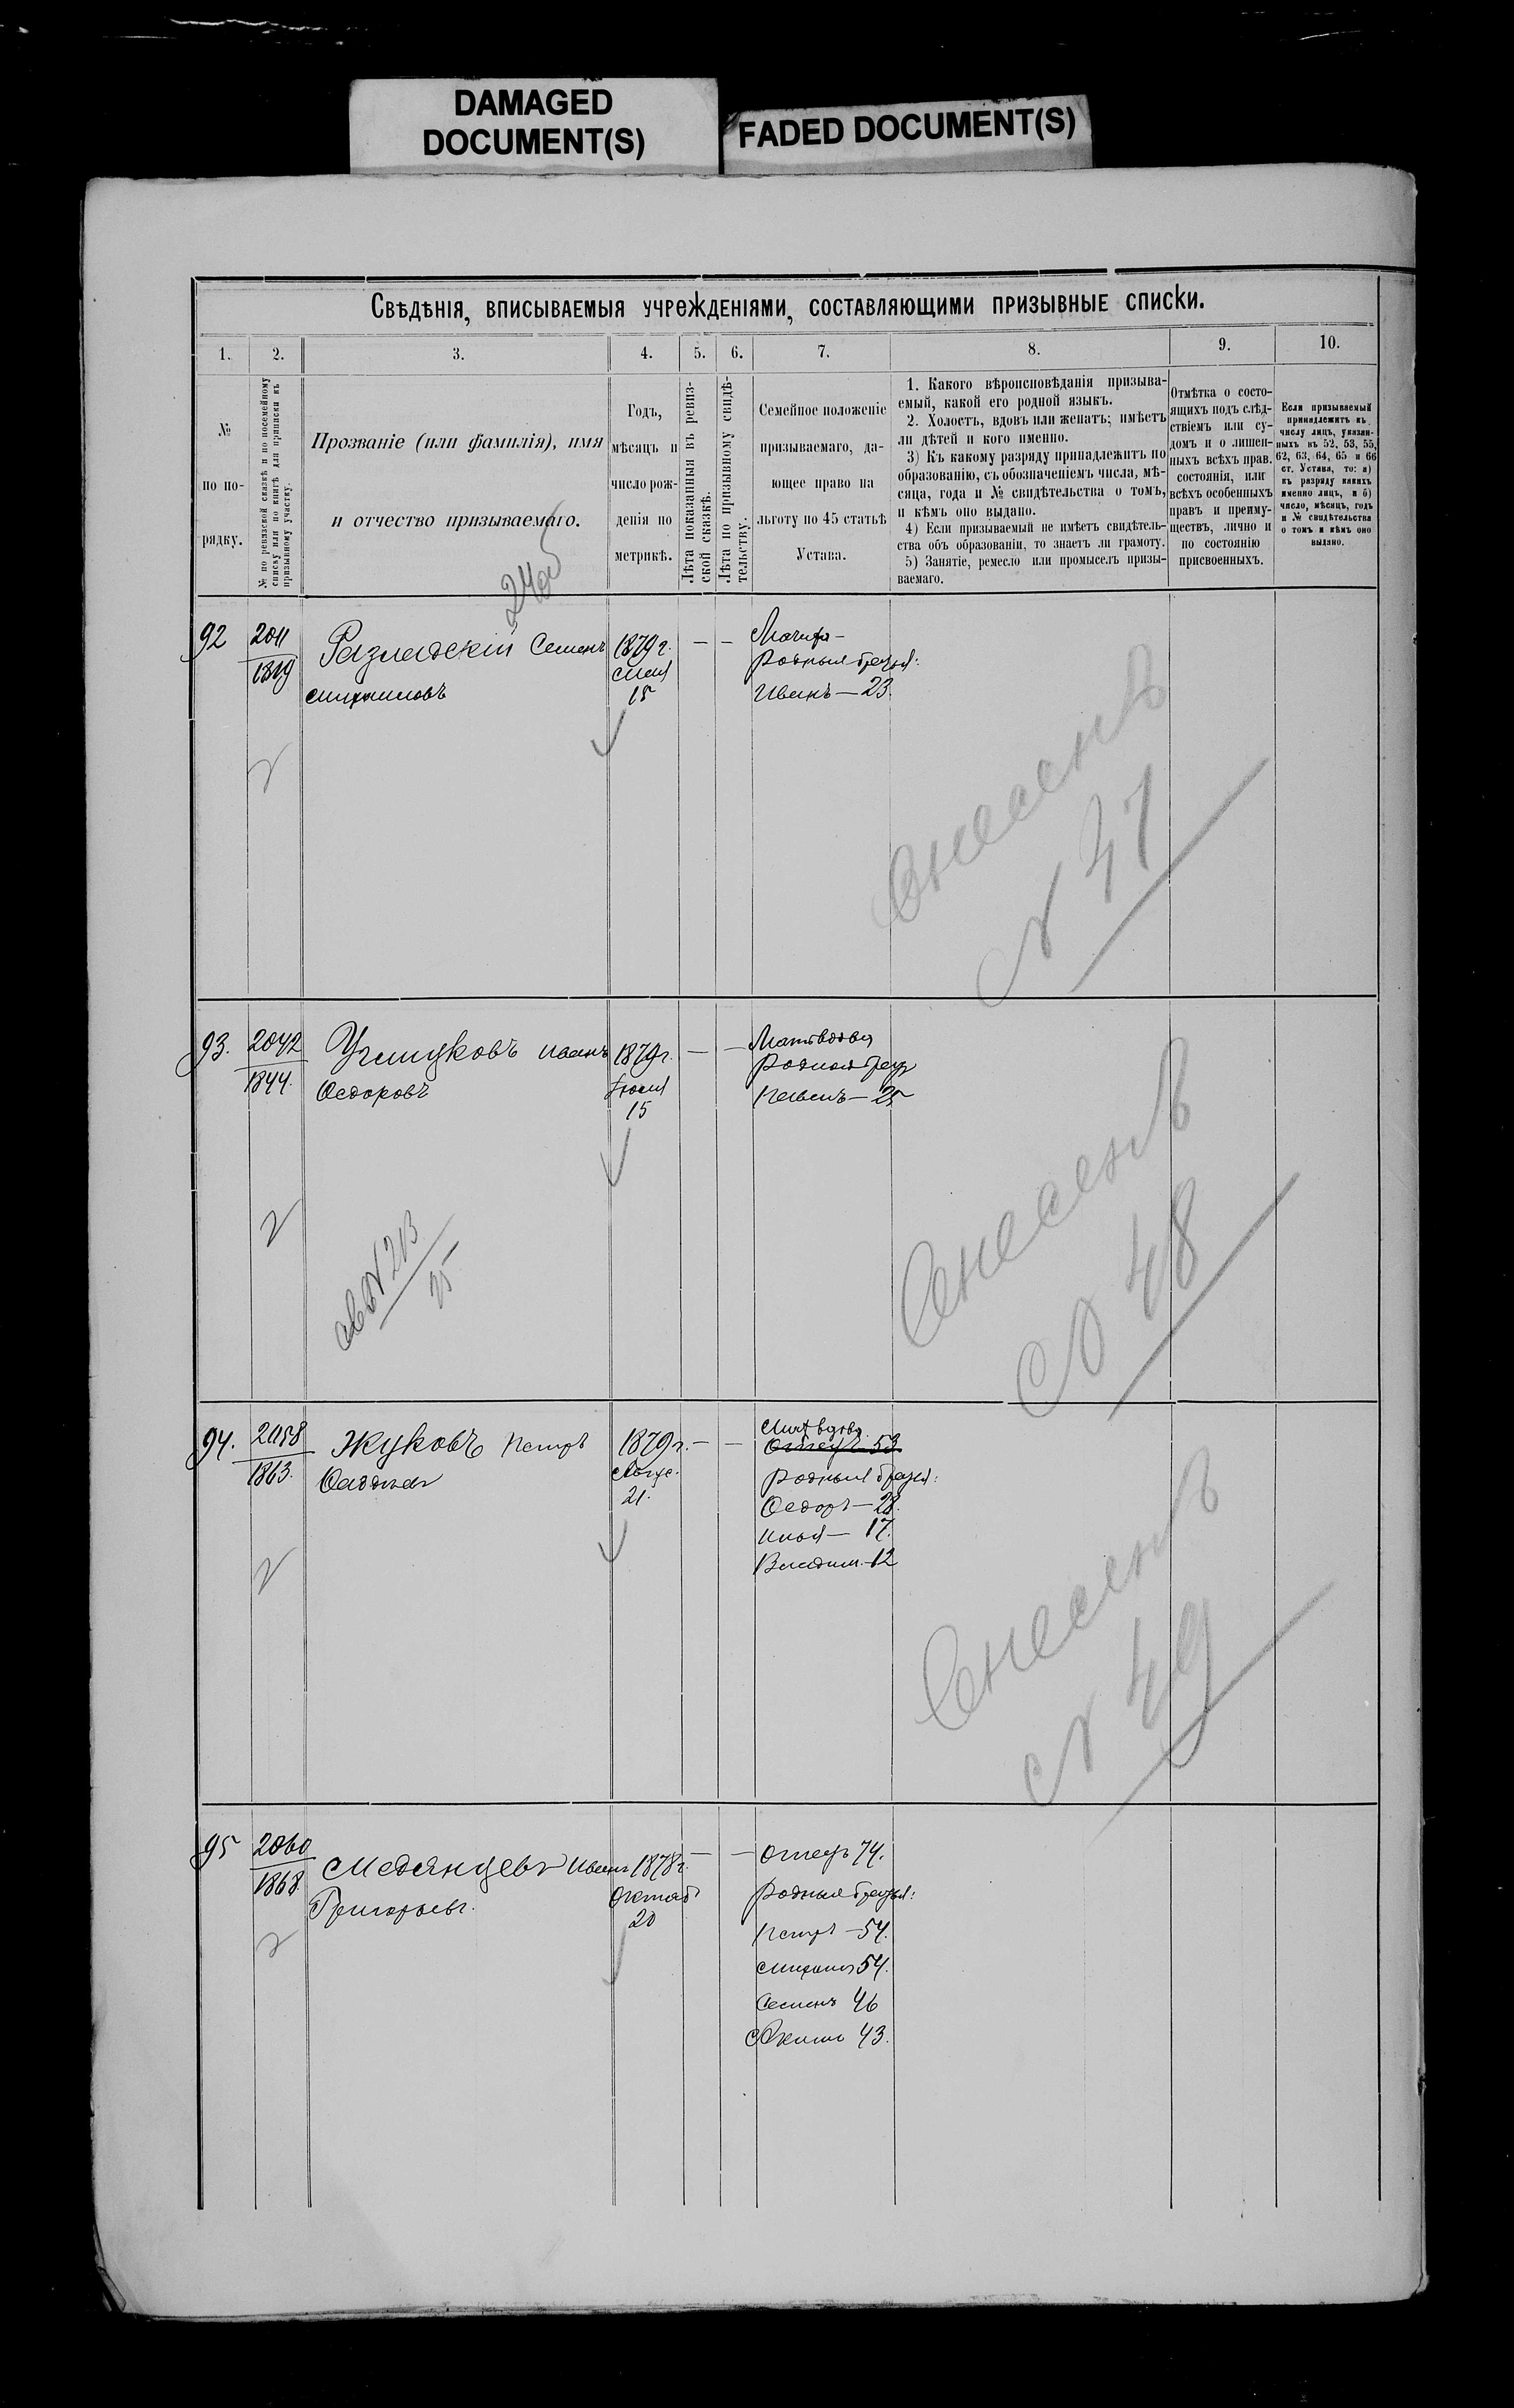 DAMAGED
DOCUMENT(S)
FADED DOCUMENT(S)
Свѣдѣнія, вписываемыя учрежденіями, составляющими призывные списки.
1.
2.
3.
4.
5.
6.
7.
8.
9.
10.
№
по по-
рядку.
№ по ревизской сказкѣ и по посемейному
списку или по книгѣ для приписки къ
призывному участку.
Прозваніе (или фамилія), имя
и отчество призываемаго.
Годъ,
мѣсяцъ и
число рож-
денія по
метрикѣ.
Лѣта показанныя въ ревиз-
ской сказкѣ.
Лѣта по призывному свидѣ-
тельству.
Семейное положеніе
призываемаго, да-
ющее право на
льготу по 45 статьѣ
Устава.
1. Какого вѣроисповѣданія призыва-
емый, какой его родной языкъ.
2. Холостъ, вдовъ или женатъ; имѣетъ
ли дѣтей и кого именно.
3) Къ какому разряду принадлежитъ по
образованію, съ обозначеніемъ числа, мѣ-
сяца, года и № свидѣтельства о томъ,
и кѣмъ оно выдано.
4) Если призываемый не имѣетъ свидѣтель-
ства объ образованіи, то знаетъ ли грамоту.
5) Занятіе, ремесло или промыселъ призы-
ваемаго.
Отмѣтка о состо-
ящихъ подъ слѣд-
ствіемъ или су-
домъ и о лишен-
ныхъ всѣхъ прав.
состоянія, или
всѣхъ особенныхъ
правъ и преиму-
ществъ, лично и
по состоянію
присвоенныхъ.
Если призываемый
принадлежитъ къ
числу лицъ, указан-
ныхъ въ 52, 53, 55,
62, 63, 64, 65 и 66
ст. Устава, то: а)
къ разряду какихъ
именно лицъ, и б)
число, мѣсяцъ, годъ
и № свидѣтельства
о томъ и кѣмъ оно
выдано.
92
2011
1819
Семенъ
Михаиловъ
1879 г.
Мая
15
Родныя братья:
Иванъ — 23.
Внесенъ
№ 47
93.
2042
1844.
Иванъ
Ѳедоровъ
1879 г.
Іюля
15
Мать вдова
— 25
Внесенъ
№ 48
94.
2058
1863.
Жуковъ Петръ
1879 г.
21.
Мать вдова
Отецъ 53
Родныя братья:
Ѳедоръ — 28.
Илья — 17.
Владим. — 12
Внесенъ
№ 49
95
2060
1868
Медянцевъ Иванъ
Григорьевъ.
1878 г.
Октяб
20
Отецъ 74.
Родныя братья:
Петръ — 54.
Михаилъ 54.
Семенъ 46
Акимъ 43.